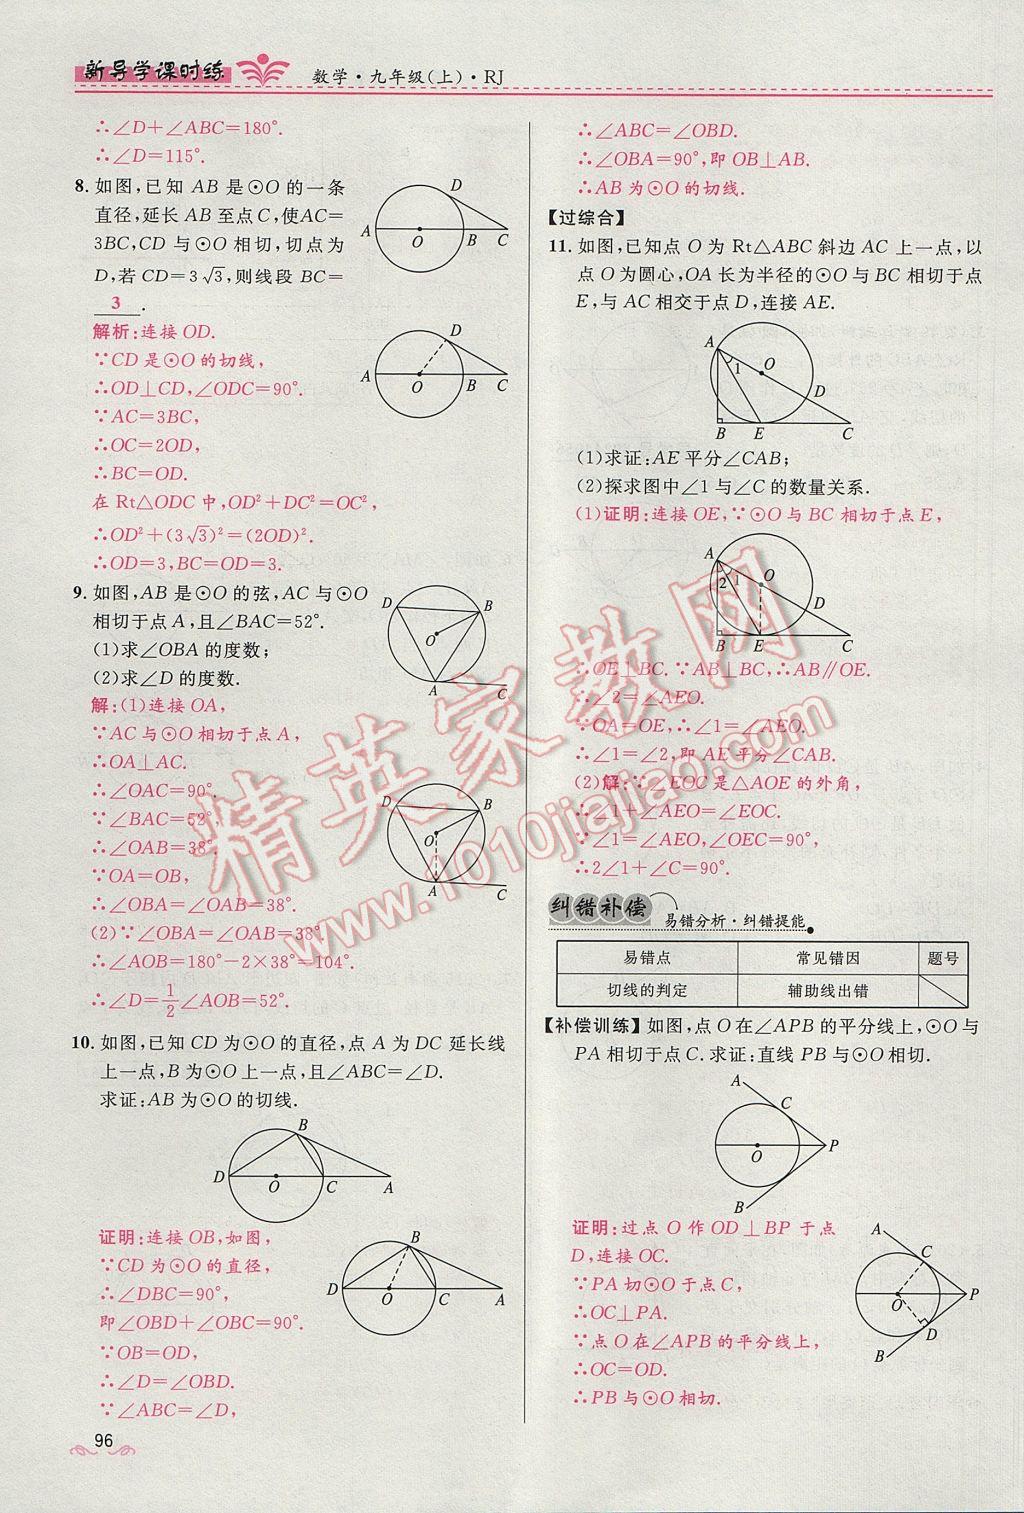 新导学课时练
数学·九年级(上)·RJ
∴∠D+∠ABC=180°.
∴∠D=115°.
8. 如图,已知 AB 是⊙O 的一条
直径,延长 AB 至点 C,使AC=
3BC,CD 与⊙O 相切,切点为
D,若 CD=3√3,则线段 BC=
3 .
A O B C D
解析:连接 OD.
∵CD 是⊙O 的切线,
∴OD⊥CD,∠ODC=90°.
∵AC=3BC,
∴OC=2OD,
∴BC=OD.
在 Rt△ODC 中,OD²+DC²=OC²,
∴OD²+(3√3)²=(2OD)².
∴OD=3,BC=OD=3.
A O B C D
9. 如图,AB 是⊙O 的弦,AC 与⊙O
相切于点 A,且∠BAC=52°.
(1)求∠OBA 的度数;
(2)求∠D 的度数.
D B O A C
解:(1)连接 OA,
∵AC 与⊙O 相切于点 A,
∴OA⊥AC.
∴∠OAC=90°.
∵∠BAC=52°,
∴∠OAB=38°.
∵OA=OB,
∴∠OBA=∠OAB=38°.
(2)∵∠OBA=∠OAB=38°,
∴∠AOB=180°-2×38°=104°.
∴∠D=1/2∠AOB=52°.
D B O A C
10. 如图,已知 CD 为⊙O 的直径,点 A 为 DC 延长线
上一点,B 为⊙O 上一点,且∠ABC=∠D.
求证:AB 为⊙O 的切线.
B D O C A
证明:连接 OB,如图,
∵CD 为⊙O 的直径,
∴∠DBC=90°,
即∠OBD+∠OBC=90°.
∵OB=OD,
∴∠D=∠OBD.
∵∠ABC=∠D,
B D O C A
96
∴∠ABC=∠OBD.
∴∠OBA=90°,即 OB⊥AB.
∴AB 为⊙O 的切线.
【过综合】
11. 如图,已知点 O 为 Rt△ABC 斜边 AC 上一点,以
点 O 为圆心,OA 长为半径的⊙O 与 BC 相切于点
E,与 AC 相交于点 D,连接 AE.
A 1 O D B E C
(1)求证:AE 平分∠CAB;
(2)探求图中∠1 与∠C 的数量关系.
(1)证明:连接 OE,∵⊙O 与 BC 相切于点 E,
A 2 1 O D B E C
∴OE⊥BC.∵AB⊥BC,∴AB∥OE.
∴∠2=∠AEO.
∵OA=OE,∴∠1=∠AEO.
∴∠1=∠2,即 AE 平分∠CAB.
(2)解:∵∠EOC 是△AOE 的外角,
∴∠1+∠AEO=∠EOC.
∵∠1=∠AEO,∠OEC=90°,
∴2∠1+∠C=90°.
纠错补偿 易错分析·纠错提能
易错点 常见错因 题号
切线的判定 辅助线出错
【补偿训练】如图,点 O 在∠APB 的平分线上,⊙O 与
PA 相切于点 C.求证:直线 PB 与⊙O 相切.
A C O P B
证明:过点 O 作 OD⊥BP 于点
D,连接 OC.
∵PA 切⊙O 于点 C,
∴OC⊥PA.
∵点 O 在∠APB 的平分线上,
∴OC=OD.
∴PB 与⊙O 相切.
A C O P D B
精英家教网
www.1010jiajiao.com